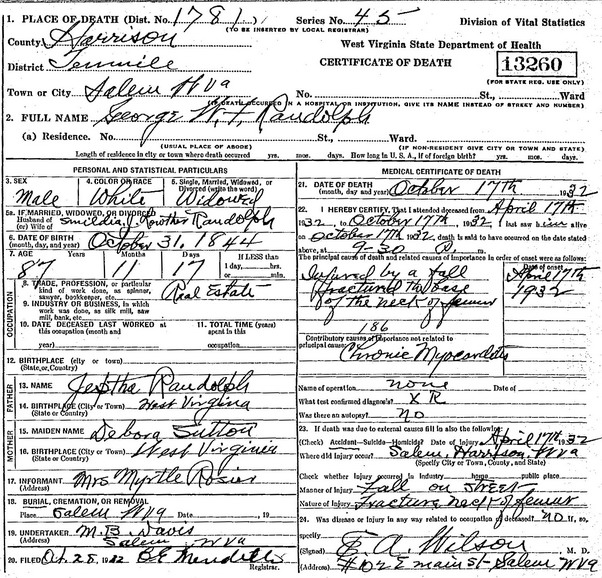 1. PLACE OF DEATH (Dist. No. 1781) Series No. 45 Division of Vital Statistics
(TO BE INSERTED BY LOCAL REGISTRAR)
County Harrison West Virginia State Department of Health
District Tenmile CERTIFICATE OF DEATH 13260
(FOR STATE REG. USE ONLY)
Town or City Salem W Va No. St., Ward
(IF DEATH OCCURRED IN A HOSPITAL OR INSTITUTION, GIVE ITS NAME INSTEAD OF STREET AND NUMBER)
2. FULL NAME George W. F. Randolph
(a) Residence. No. St., Ward.
(USUAL PLACE OF ABODE) (IF NON-RESIDENT GIVE CITY OR TOWN AND STATE)
Length of residence in city or town where death occurred yrs. mos. days. How long in U. S. A., if of foreign birth? yrs. mos. days.
PERSONAL AND STATISTICAL PARTICULARS
3. SEX 4. COLOR OR RACE 5. Single, Married, Widowed, or
Divorced (write the word)
Male White Widowed
5a. IF MARRIED, WIDOWED, OR DIVORCED
Husband of
(or) Wife of J. Lowther Randolph
6. DATE OF BIRTH
(month, day, and year) October 31, 1844
7. AGE Years Months Days If LESS than
1 day, hrs.
or min.
87 11 17
OCCUPATION
8. TRADE, PROFESSION, or particular
kind of work done, as spinner,
sawyer, bookkeeper, etc. Real Estate
9. INDUSTRY OR BUSINESS, in which
work was done, as silk mill, saw
mill, bank, etc.
10. DATE DECEASED LAST WORKED at
this occupation (month and
year)
11. TOTAL TIME (years)
spent in this
occupation
12. BIRTHPLACE (city or town)
(State or Country)
FATHER
13. NAME Jeptha Randolph
14. BIRTHPLACE (City or Town) West Virginia
(State or Country)
MOTHER
15. MAIDEN NAME Debora Sutton
16. BIRTHPLACE (City or Town) West Virginia
(State or Country)
17. INFORMANT Mrs Myrtle Rosier
(Address)
18. BURIAL, CREMATION, OR REMOVAL
Place Salem W Va Date , 19
19. UNDERTAKER M. B. Davis
(Address) Salem W Va
20. FILED Oct. 25, 1932
Registrar.
MEDICAL CERTIFICATE OF DEATH
21. DATE OF DEATH
(month, day, and year) October 17th 1932
22. I HEREBY CERTIFY, That I attended deceased from April 17th
1932, to October 17th, 1932 I last saw him alive
on October 17th 1932, death is said to have occurred on the date stated
above, at 9-30 m.
The principal cause of death and related causes of importance in order of onset were as follows:
Date of onset
Injured by a fall April 17th
fractured the base 1932
of the neck of femur
186
Contributory causes of importance not related to
principal cause:
Chronic Myocarditis
Name of operation none Date of
What test confirmed diagnosis? X R
Was there an autopsy? No
23. If death was due to external causes fill in also the following:
(Check) Accident—Suicide—Homicide? Date of Injury April 17th 1932
Where did injury occur? Salem, Harrison, W Va
(Specify City or Town, County, and State)
Check whether injury occurred in industry home public place
Manner of Injury Fall on Street
Nature of Injury Fracture neck of femur
24. Was disease or injury in any way related to occupation of deceased? no If so,
specify
(Signed) E. A. Wilson M. D.
(Address) E main St - Salem W Va